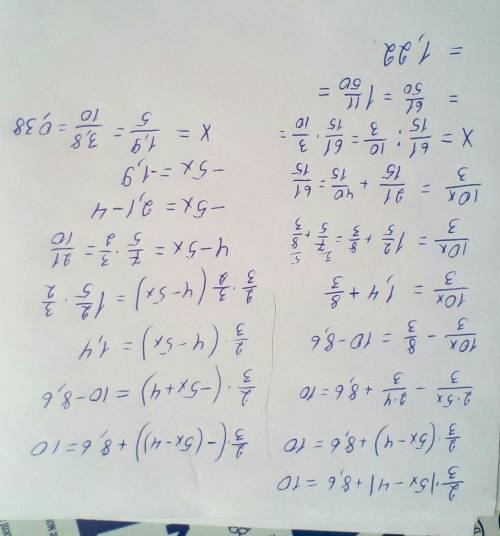 2/3·|5x-4|+8,6=10
2/3·(5x-4)+8,6=10
2·5x/3 - 2·4/3 + 8,6=10
10x/3 - 8/3 = 10-8,6
10x/3 = 1,4 + 8/3
10x/3 = 1 2/5 + 8/3 = ³7/5 + ⁵8/3
10x/3 = 21/15 + 40/15 = 61/15
x = 61/15 : 10/3 = 61/15 · 3/10 =
= 61/50 = 1 11/50 =
= 1,22
2/3·(-(5x-4))+8,6=10
2/3·(-5x+4)=10-8,6
2/3·(4-5x)=1,4
3/2·2/3(4-5x)=1 2/5·3/2
4-5x = 7/5·3/2 = 21/10
-5x = 2,1-4
-5x = -1,9
x = 1,9/5 = 3,8/10 = 0,38